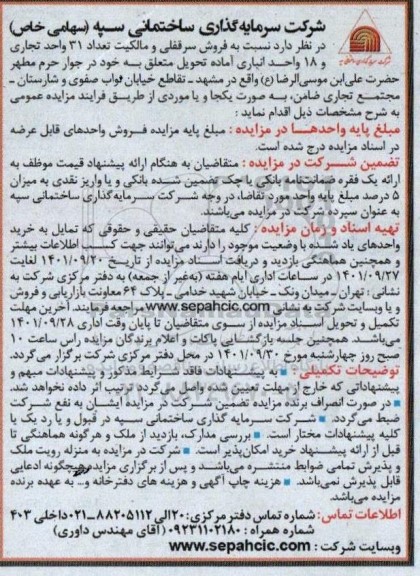 شرکت سرمایه‌گذاری ساختمانی سپه (سهامی خاص)
در نظر دارد نسبت به فروش سرقفلی و مالکیت تعداد ۳۱ واحد تجاری
و ۱۸ واحد انباری آماده تحویل متعلق به خود در جوار حرم مطهر
حضرت علی‌ابن موسی‌الرضا (ع) واقع در مشهد ـ تقاطع خیابان نواب صفوی و شارستان ـ
مجتمع تجاری ضامن، به صورت یکجا و یا موردی از طریق فرایند مزایده عمومی
به شرح مشخصات ذیل اقدام نماید :
مبلغ پایه واحدهـا در مزایده : مبلغ پایه مزایده فـروش واحدهای قابل عرضه
در اسناد مزایده درج شده است.
تضمین شـرکت در مزایده : متقاضیان به هنگام ارائه پیشنهاد قیمت موظف به
ارائه یک فقره ضمانتنامه بانکی یا چک تضمین شده بانکی و یا واریز نقدی به میزان
۵ درصد مبلغ پایه واحد مورد تقاضا، در وجه شـرکت سـرمایه‌گذاری ساختمانی سپه
به عنوان سپرده شرکت در مزایده می‌باشند.
تهیه اسناد و زمان مزایده : کلیه متقاضیان حقیقی و حقوقی که تمایل به خرید
واحدهای یاد شـده با وضعیت موجود را دارند می‌توانند جهت کسب اطلاعات بیشتر
و همچنین هماهنگی بازدید و دریافت اسناد مزایده از تاریـخ ۱۴۰۱/۰۹/۲۰ لغایت
۱۴۰۱/۰۹/۲۷ در سـاعات اداری ایام هفته (به‌غیر از جمعه) به دفتر مرکزی شرکت به
نشانی : تهران ـ میدان ونک ـ خیابان شهید خدامی ـ پلاک ۶۴ معاونت بازاریابی و فروش
و یا وبسایت شرکت به نشانی www.sepahcic.com مراجعه فرمایند. آخرین مهلت
تکمیل و تحویل اسـناد مزایده از سـوی متقاضیان تا پایان وقت اداری ۱۴۰۱/۰۹/۲۸
می‌باشد. همچنین جلسه بازگشـایی پاکات و اعلام برندگان مزایده راس ساعت ۱۰
صبح روز چهارشنبه مورخ ۱۴۰۱/۰۹/۳۰ در محل دفتر مرکزی شرکت برگزار می‌گردد.
توضیحات تکمیلی : ■ به پیشنهادات فاقد سـپرده، شرایط مذکور و پیشنهادات مبهم و
پیشنهاداتی که خارج از مهلت تعیین شده واصل می گردد ترتیب اثر داده نخواهد شد.
■ در صورت انصراف برنده مزایده تضمین شرکت در مزایده ایشان به نفع شرکت
ضبط می‌گردد. ■ شرکت سرمایه گذاری ساختمانی سپه در قبول و یا رد یک یا
کلیه پیشنهادات مختار است. ■ بررسی مدارک، بازدید از ملک و هرگونه هماهنگی تا
قبل از ارائه پیشنهاد خرید امکان‌پذیر است. ■ شرکت در مزایده به منزله رویت ملک
و پذیرش تمامی ضوابط منتشـره می‌باشـد و پس از برگزاری مزایده هیچگونه ادعایی
قابل پذیرش نمی‌باشد. ■ هزینه چاپ آگهی و هزینه های دفترخانه و... به عهده برنده
مزایده می‌باشد.
اطلاعات تماس : شماره تماس دفتر مرکزی : ۲۰الی ۸۸۲۰۵۱۱۲ـ۰۲۱ داخلی ۴۰۳
شماره همراه : ۰۹۲۳۱۱۰۲۱۸۰ (آقای مهندس داوری)
وبسایت شرکت : www.sepahcic.com